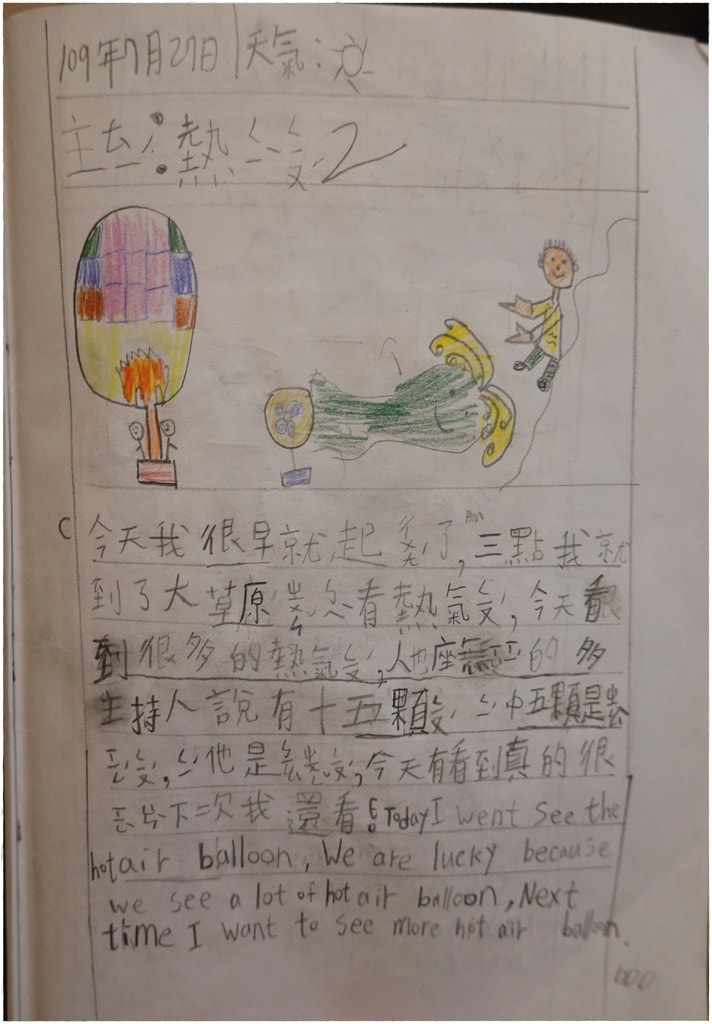 109年7月27日 天氣:
主ㄊㄧˊ:熱ㄑㄧˋㄑㄧㄡˊ2
今天我很早就起ㄔㄨㄤˊ了,AM三點我就
到了大草原
看熱氣ㄑㄧㄡˊ,今天看
到很多的熱氣ㄑㄧㄡˊ,人也座無ㄒㄧ的多
主持人說有十五顆ㄑㄧㄡˊ,ㄑㄧˊ中五顆是
他是
今天有看到真的很
下次我還看!Today I went See the
hot air balloon, We are lucky because
we see a lot of hot air balloon, Next
time I want to see more hot air balloon.